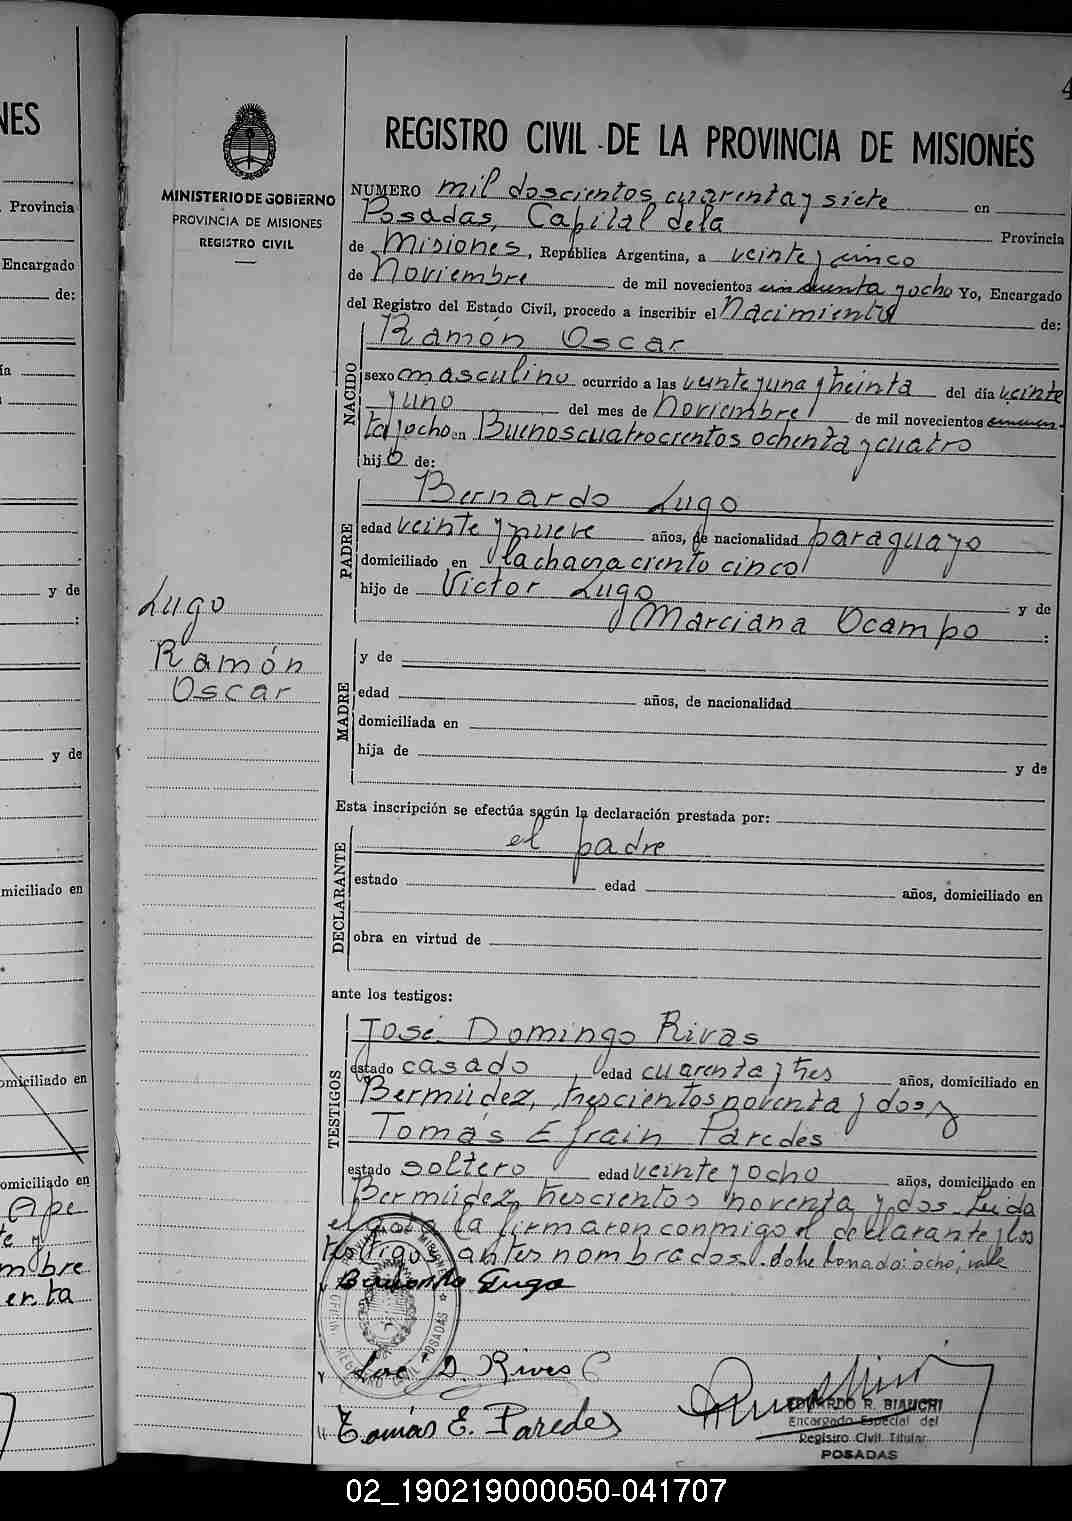 NES
Provincia
Encargado
de:
ía
y de
:
y de
miciliado en
omiciliado en
omiciliado en
Ape
te y
mbre
enta
4
MINISTERIO DE GOBIERNO
PROVINCIA DE MISIONES
REGISTRO CIVIL
Lugo
Ramón
Oscar
REGISTRO CIVIL DE LA PROVINCIA DE MISIONES
NUMERO mil doscientos cuarenta y siete en
Posadas, Capital de la Provincia
de Misiones, República Argentina, a veinte y cinco
de Noviembre de mil novecientos cincuenta y ocho Yo, Encargado
del Registro del Estado Civil, procedo a inscribir el Nacimiento de:
NACIDO
Ramón Oscar
sexo masculino ocurrido a las veinte y una y treinta del día veinte
y uno del mes de Noviembre de mil novecientos cincuen-
ta y ocho en Buenos cuatrocientos ochenta y cuatro
hijo de:
PADRE
Bernardo Lugo
edad veinte y nueve años, de nacionalidad paraguayo
domiciliado en la chacra ciento cinco
hijo de Victor Lugo y de
Marciana Ocampo :
MADRE
y de
edad años, de nacionalidad
domiciliada en
hija de y de
Esta inscripción se efectúa según la declaración prestada por:
DECLARANTE
el padre
estado edad años, domiciliado en
obra en virtud de
ante los testigos:
TESTIGOS
José Domingo Rivas
estado casado edad cuarenta y tres años, domiciliado en
Bermúdez, trescientos noventa y dos y
Tomás Efrain Paredes
estado soltero edad veinte y ocho años, domiciliado en
Bermúdez, trescientos noventa y dos. Leida
el acta la firmaron conmigo el declarante y los
testigos antes nombrados. sobre borrado: ocho; vale
Bernardo Lugo
PROVINCIA DE MISIONES
REGISTRO CIVIL POSADAS
José D. Rivas
Tomás E. Paredes
EDUARDO R. BIAUCHI
Encargado Especial del
Registro Civil Titular
POSADAS
02_190219000050-041707